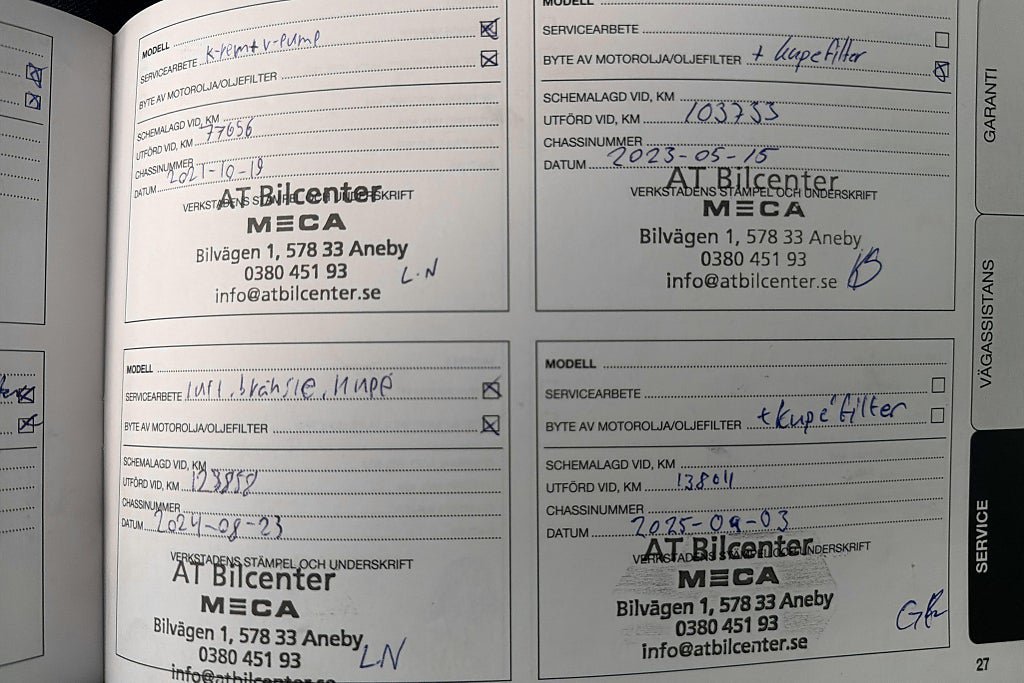 MODELL
SERVICEARBETE K-rem + v-pump
BYTE AV MOTOROLJA/OLJEFILTER
SCHEMALAGD VID, KM
UTFÖRD VID, KM 77656
CHASSINUMMER
DATUM 2021-10-19
VERKSTADENS STÄMPEL OCH UNDERSKRIFT
AT Bilcenter
MECA
Bilvägen 1, 578 33 Aneby
0380 451 93
info@atbilcenter.se
L.N
MODELL
SERVICEARBETE
BYTE AV MOTOROLJA/OLJEFILTER + kupefilter
SCHEMALAGD VID, KM
UTFÖRD VID, KM 103753
CHASSINUMMER
DATUM 2023-05-15
VERKSTADENS STÄMPEL OCH UNDERSKRIFT
AT Bilcenter
MECA
Bilvägen 1, 578 33 Aneby
0380 451 93
info@atbilcenter.se
MODELL
SERVICEARBETE luft, bränsle, kupé
BYTE AV MOTOROLJA/OLJEFILTER
SCHEMALAGD VID, KM
UTFÖRD VID, KM 123858
CHASSINUMMER
DATUM 2024-08-23
VERKSTADENS STÄMPEL OCH UNDERSKRIFT
AT Bilcenter
MECA
Bilvägen 1, 578 33 Aneby
0380 451 93
info@atbilcenter.se
LN
MODELL
SERVICEARBETE
BYTE AV MOTOROLJA/OLJEFILTER + kupé filter
SCHEMALAGD VID, KM
UTFÖRD VID, KM 13804
CHASSINUMMER
DATUM 2025-09-03
VERKSTADENS STÄMPEL OCH UNDERSKRIFT
AT Bilcenter
MECA
Bilvägen 1, 578 33 Aneby
0380 451 93
info@atbilcenter.se
GARANTI
VÄGASSISTANS
SERVICE
27